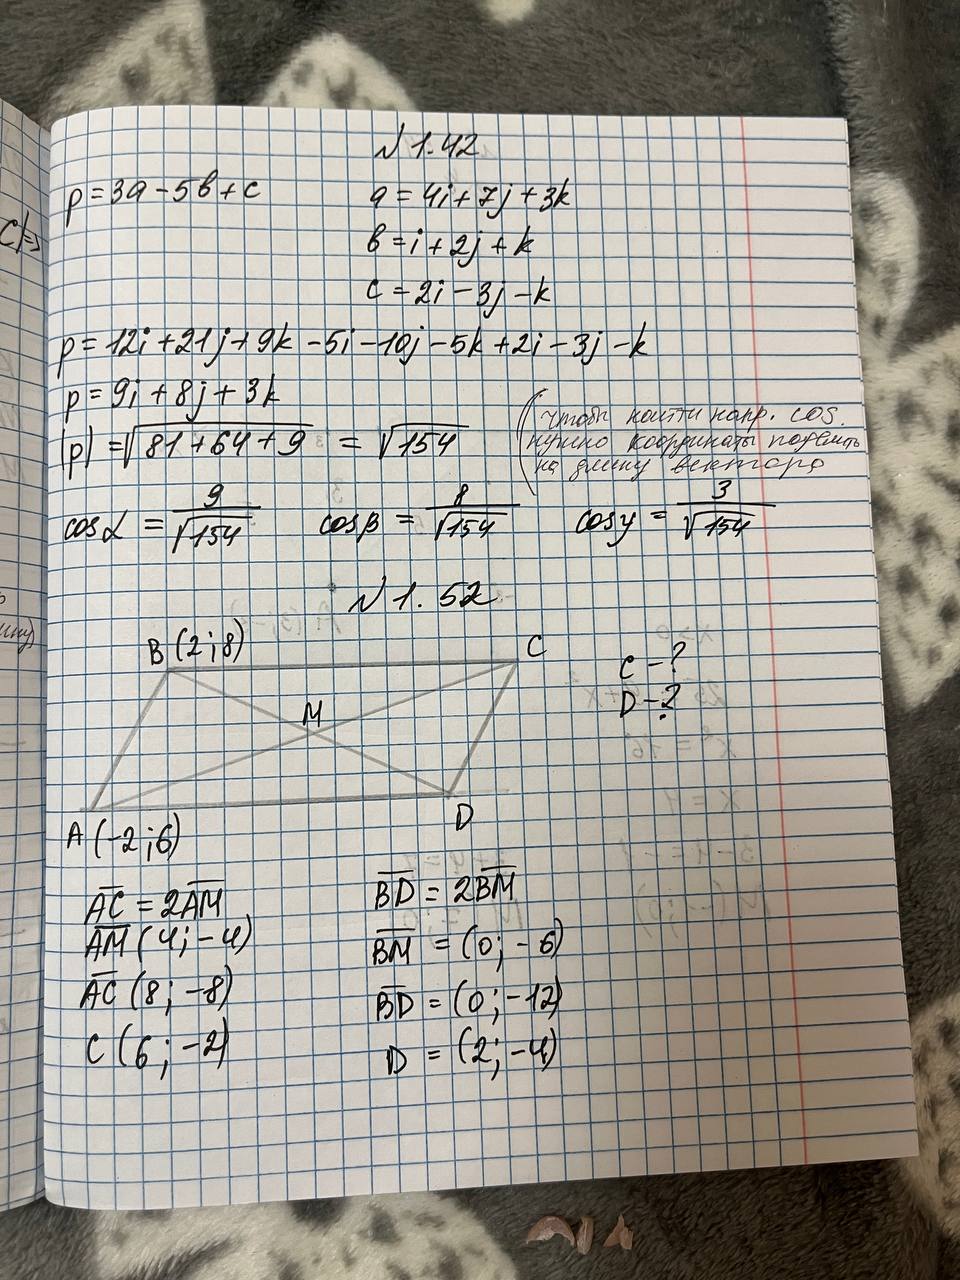 N 1.42
p = 3a - 5b + c
a = 4i + 7j + 3k
b = i + 2j + k
c = 2i - 3j - k
p = 12i + 21j + 9k - 5i - 10j - 5k + 2i - 3j - k
p = 9i + 8j + 3k
(чтобы найти напр. cos.
нужно координаты поделить
на длину вектора
|p| = √81 + 64 + 9 = √154
cosα = 9/√154 cosβ = 8/√154 cosγ = 3/√154
N 1.52
B (2; 8)
C
C - ?
D - ?
M
A (-2; 6)
D
AC = 2AM
AM (4; -4)
AC (8; -8)
C (6; -2)
BD = 2BM
BM = (0; -6)
BD = (0; -12)
D = (2; -4)
C|=>